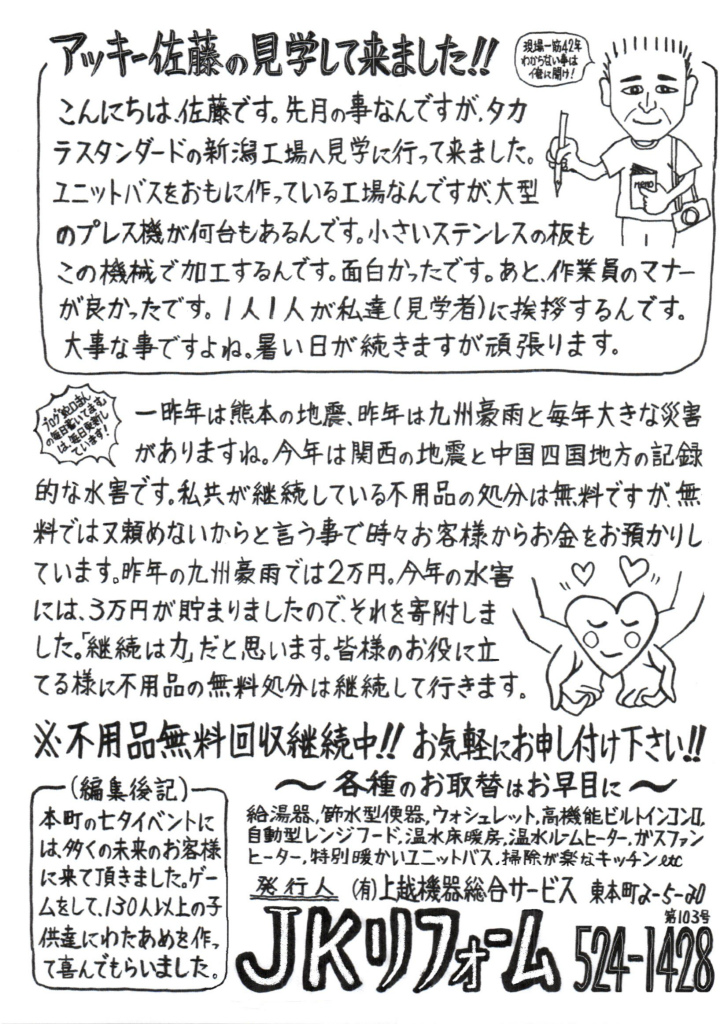 アッキー佐藤の見学して来ました!!
現場一筋42年
わからない事は
俺に聞け!
こんにちは、佐藤です。先月の事なんですが、タカ
ラスタンダードの新潟工場へ見学に行って来ました。
ユニットバスをおもに作っている工場なんですが、大型
のプレス機が何台もあるんです。小さいステンレスの板も
この機械で加工するんです。面白かったです。あと、作業員のマナー
が良かったです。1人1人が私達(見学者)に挨拶するんです。
大事な事ですよね。暑い日が続きますが頑張ります。
ブログ「蛇口まん
の毎日磨いてます」
は、毎日更新し
ています!
一昨年は熊本の地震、昨年は九州豪雨と毎年大きな災害
がありますね。今年は関西の地震と中国四国地方の記録
的な水害です。私共が継続している不用品の処分は無料ですが、無
料では又頼めないからと言う事で時々お客様からお金をお預かりし
ています。昨年の九州豪雨では2万円。今年の水害
には、3万円が貯まりましたので、それを寄附しま
した。「継続は力」だと思います。皆様のお役に立
てる様に不用品の無料処分は継続して行きます。
※不用品無料回収継続中!! お気軽にお申し付け下さい!!
(編集後記)
本町の七夕イベントに
は、多くの未来のお客様
に来て頂きました。ゲー
ムをして、130人以上の子
供達にわたあめを作っ
て喜んでもらいました。
〜各種のお取替はお早目に〜
給湯器,節水型便器,ウォシュレット,高機能ビルトインコンロ,
自動型レンジフード,温水床暖房,温水ルームヒーター,ガスファン
ヒーター,特別暖かいユニットバス,掃除が楽なキッチン,etc
発行人 (有)上越機器総合サービス 東本町2-5-30
第103号
JKリフォーム 524-1428